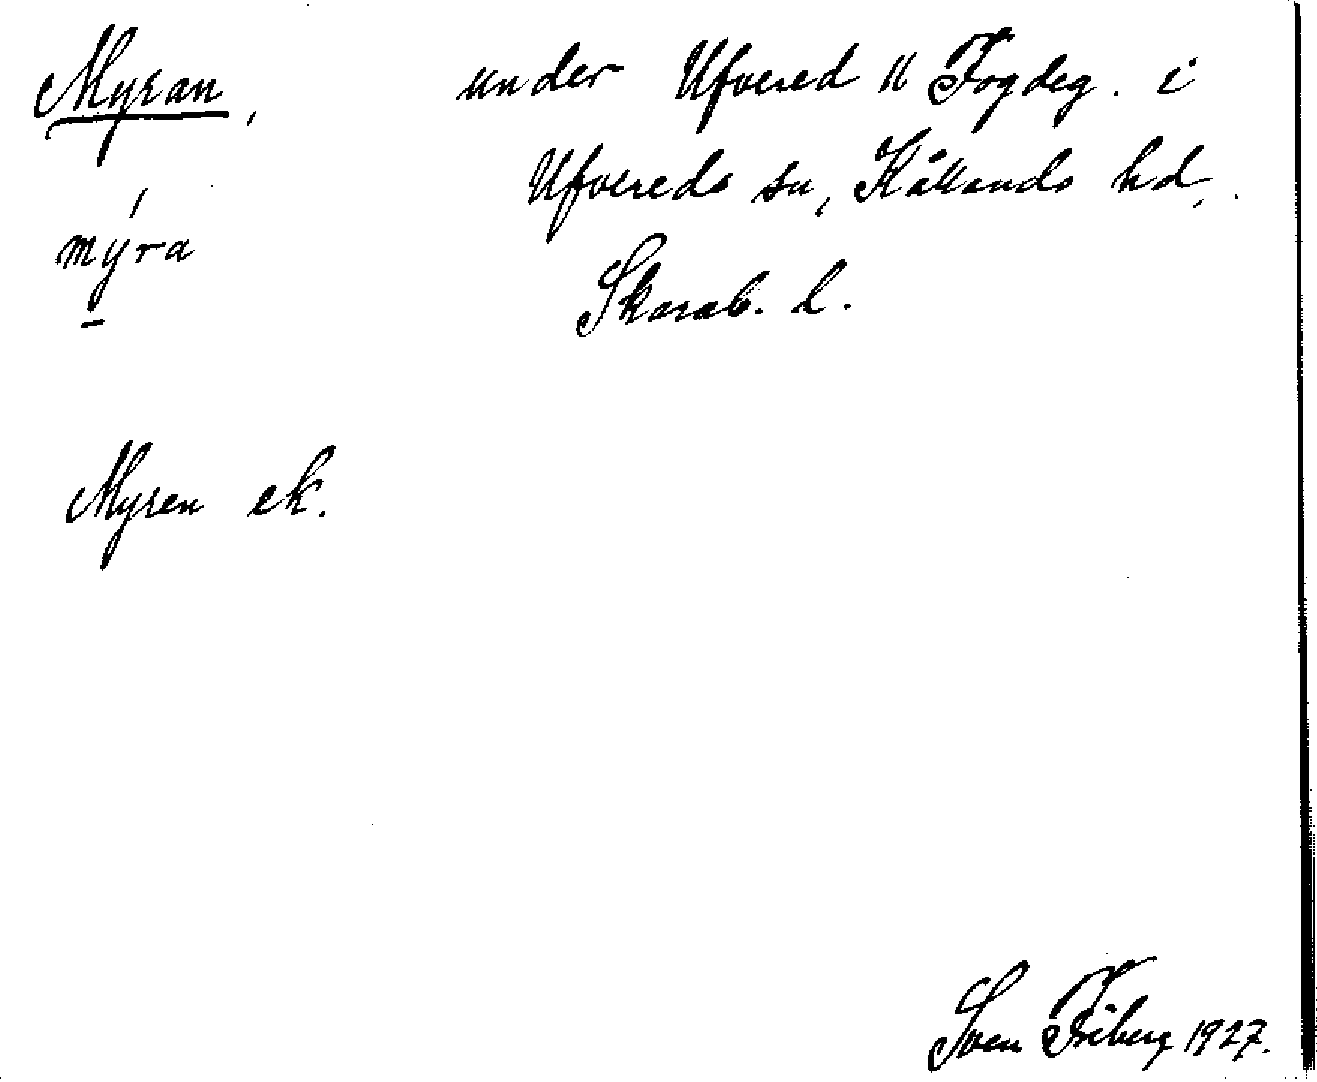 Myran, under Ufvered 11 Fogdeg. i
Ufvereds sn, Kållands hd.
mýra
Skarab. l.
Myren ek.
Sven Friberg 1927.